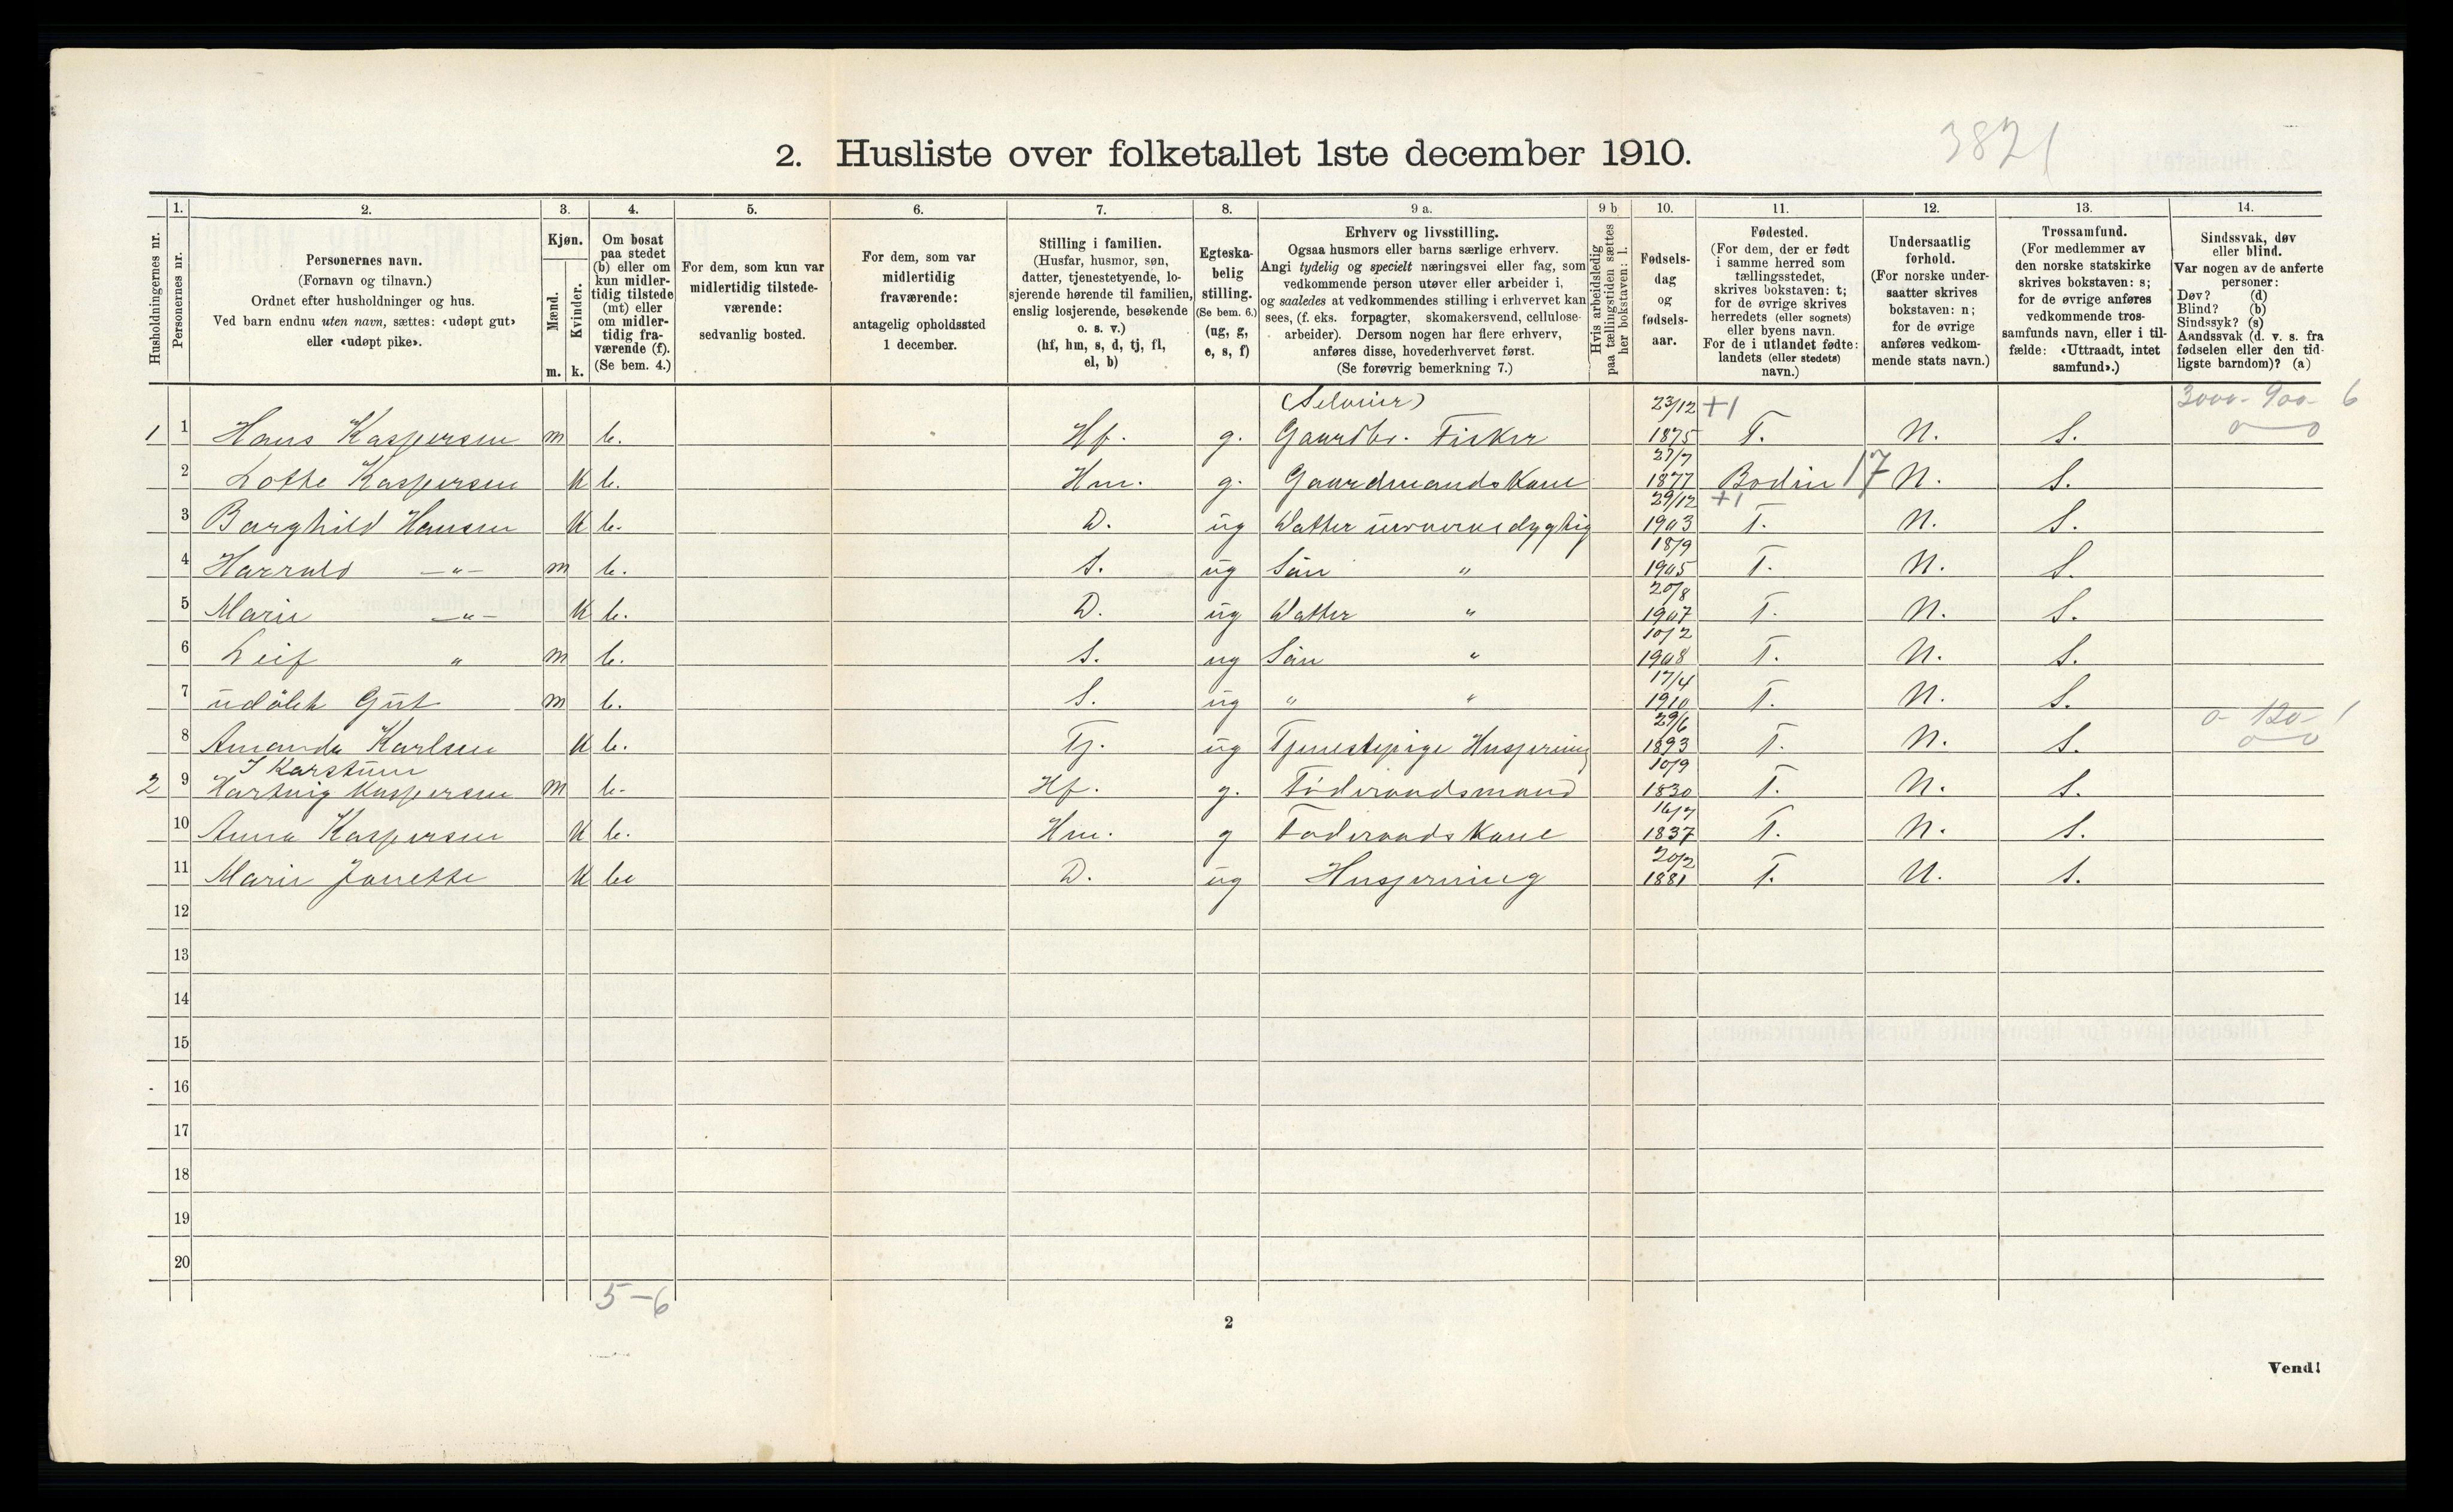 3821
2. Husliste over folketallet 1ste december 1910.
1. 2. 3. 4. 5. 6. 7. 8. 9 a. 9 b 10. 11. 12. 13. 14.
Husholdningernes nr.
Personernes nr.
Personernes navn.
(Fornavn og tilnavn.)
Ordnet efter husholdninger og hus.
Ved barn endnu uten navn, sættes: «udøpt gut»
eller «udøpt pike».
Kjøn.
Mænd.
Kvinder.
m. k.
Om bosat
paa stedet
(b) eller om
kun midler-
tidig tilstede
(mt) eller
om midler-
tidig fra-
værende (f).
(Se bem. 4.)
For dem, som kun var
midlertidig tilstede-
værende:
sedvanlig bosted.
For dem, som var
midlertidig
fraværende:
antagelig opholdssted
1 december.
Stilling i familien.
(Husfar, husmor, søn,
datter, tjenestetyende, lo-
sjerende hørende til familien,
enslig losjerende, besøkende
o. s. v.)
(hf, hm, s, d, tj, fl,
el, b)
Egteska-
belig
stilling.
(Se bem. 6.)
(ug, g,
e, s, f)
Erhverv og livsstilling.
Ogsaa husmors eller barns særlige erhverv.
Angi tydelig og specielt næringsvei eller fag, som
vedkommende person utøver eller arbeider i,
og saaledes at vedkommendes stilling i erhvervet kan
sees, (f. eks. forpagter, skomakersvend, cellulose-
arbeider). Dersom nogen har flere erhverv,
anføres disse, hovederhvervet først.
(Se forøvrig bemerkning 7.)
Hvis arbeidsledig
paa tællingstiden sættes
her bokstaven: l.
Fødsels-
dag
og
fødsels-
aar.
Fødested.
(For dem, der er født
i samme herred som
tællingsstedet,
skrives bokstaven: t;
for de øvrige skrives
herredets (eller sognets)
eller byens navn.
For de i utlandet fødte:
landets (eller stedets)
navn.)
Undersaatlig
forhold.
(For norske under-
saatter skrives
bokstaven: n;
for de øvrige
anføres vedkom-
mende stats navn.)
Trossamfund.
(For medlemmer av
den norske statskirke
skrives bokstaven: s;
for de øvrige anføres
vedkommende tros-
samfunds navn, eller i til-
fælde: «Uttraadt, intet
samfund».)
Sindssvak, døv
eller blind.
Var nogen av de anførte
personer:
Døv? (d)
Blind? (b)
Sindssyk? (s)
Aandssvak (d. v. s. fra
fødselen eller den tid-
ligste barndom)? (a)
(Selveier) 23/12 +1 3000 - 900 - 6
1 1 Hans Kaspersen m b. Hf. g. Gaardbr. Fisker 1875 T. N. S. 0 0
27/7
2 Lotte Kaspersen K b. Hm. g. Gaardmandskone 1877 Bodin 17 N. S.
29/12 +1
3 Borghild Hansen K b. D. ug Datter uervervsdygtig 1903 T. N. S.
18/9
4 Harrald —"— m b. S. ug Sön " 1905 T. N. S.
20/8
5 Marie —"— K b. D. ug Datter " 1907 T. N. S.
10/2
6 Leif " m b. S. ug Sön " 1908 T. N. S.
17/4
7 udöbt Gut m b. S. ug " " 1910 T. N. S.
29/6 0 - 120 - 1
8 Amanda Karlsen K b. Tj. ug Tjenestepige Husgerning 1893 T. N. S. 0 0
10/9
2 9 Hartvig Kaspersen m b. Hf. g. Föderaadsmand 1830 T. N. S.
16/7
10 Anna Kaspersen K b. Hm. g Föderaadskone 1837 T. N. S.
20/2
11 Marie Janette K b. D. ug Husgerning 1881 T. N. S.
12
13
14
15
16
17
18
19
20
5-6
2
Vend!